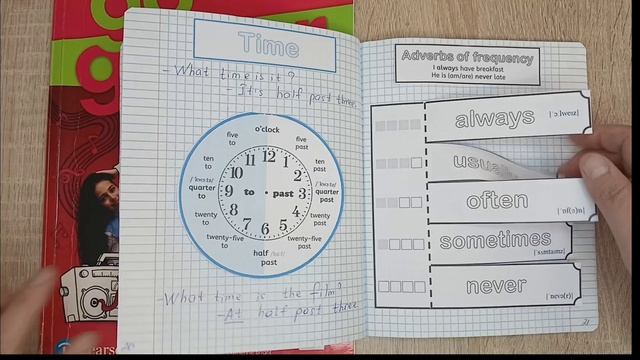 go
Time
- What time is it?
- It's half past three.
o'clock
five
to
five
past
ten
to
ten
past
quarter
to
quarter
past
twenty
to
twenty
past
twenty-five
to
twenty-five
past
half
past
12
1
2
3
4
5
6
7
8
9
10
11
to
past
- What time is the film?
- At half past three.
Adverbs of frequency
I always have breakfast
He is (am/are) never late
always
often
sometimes
never
21